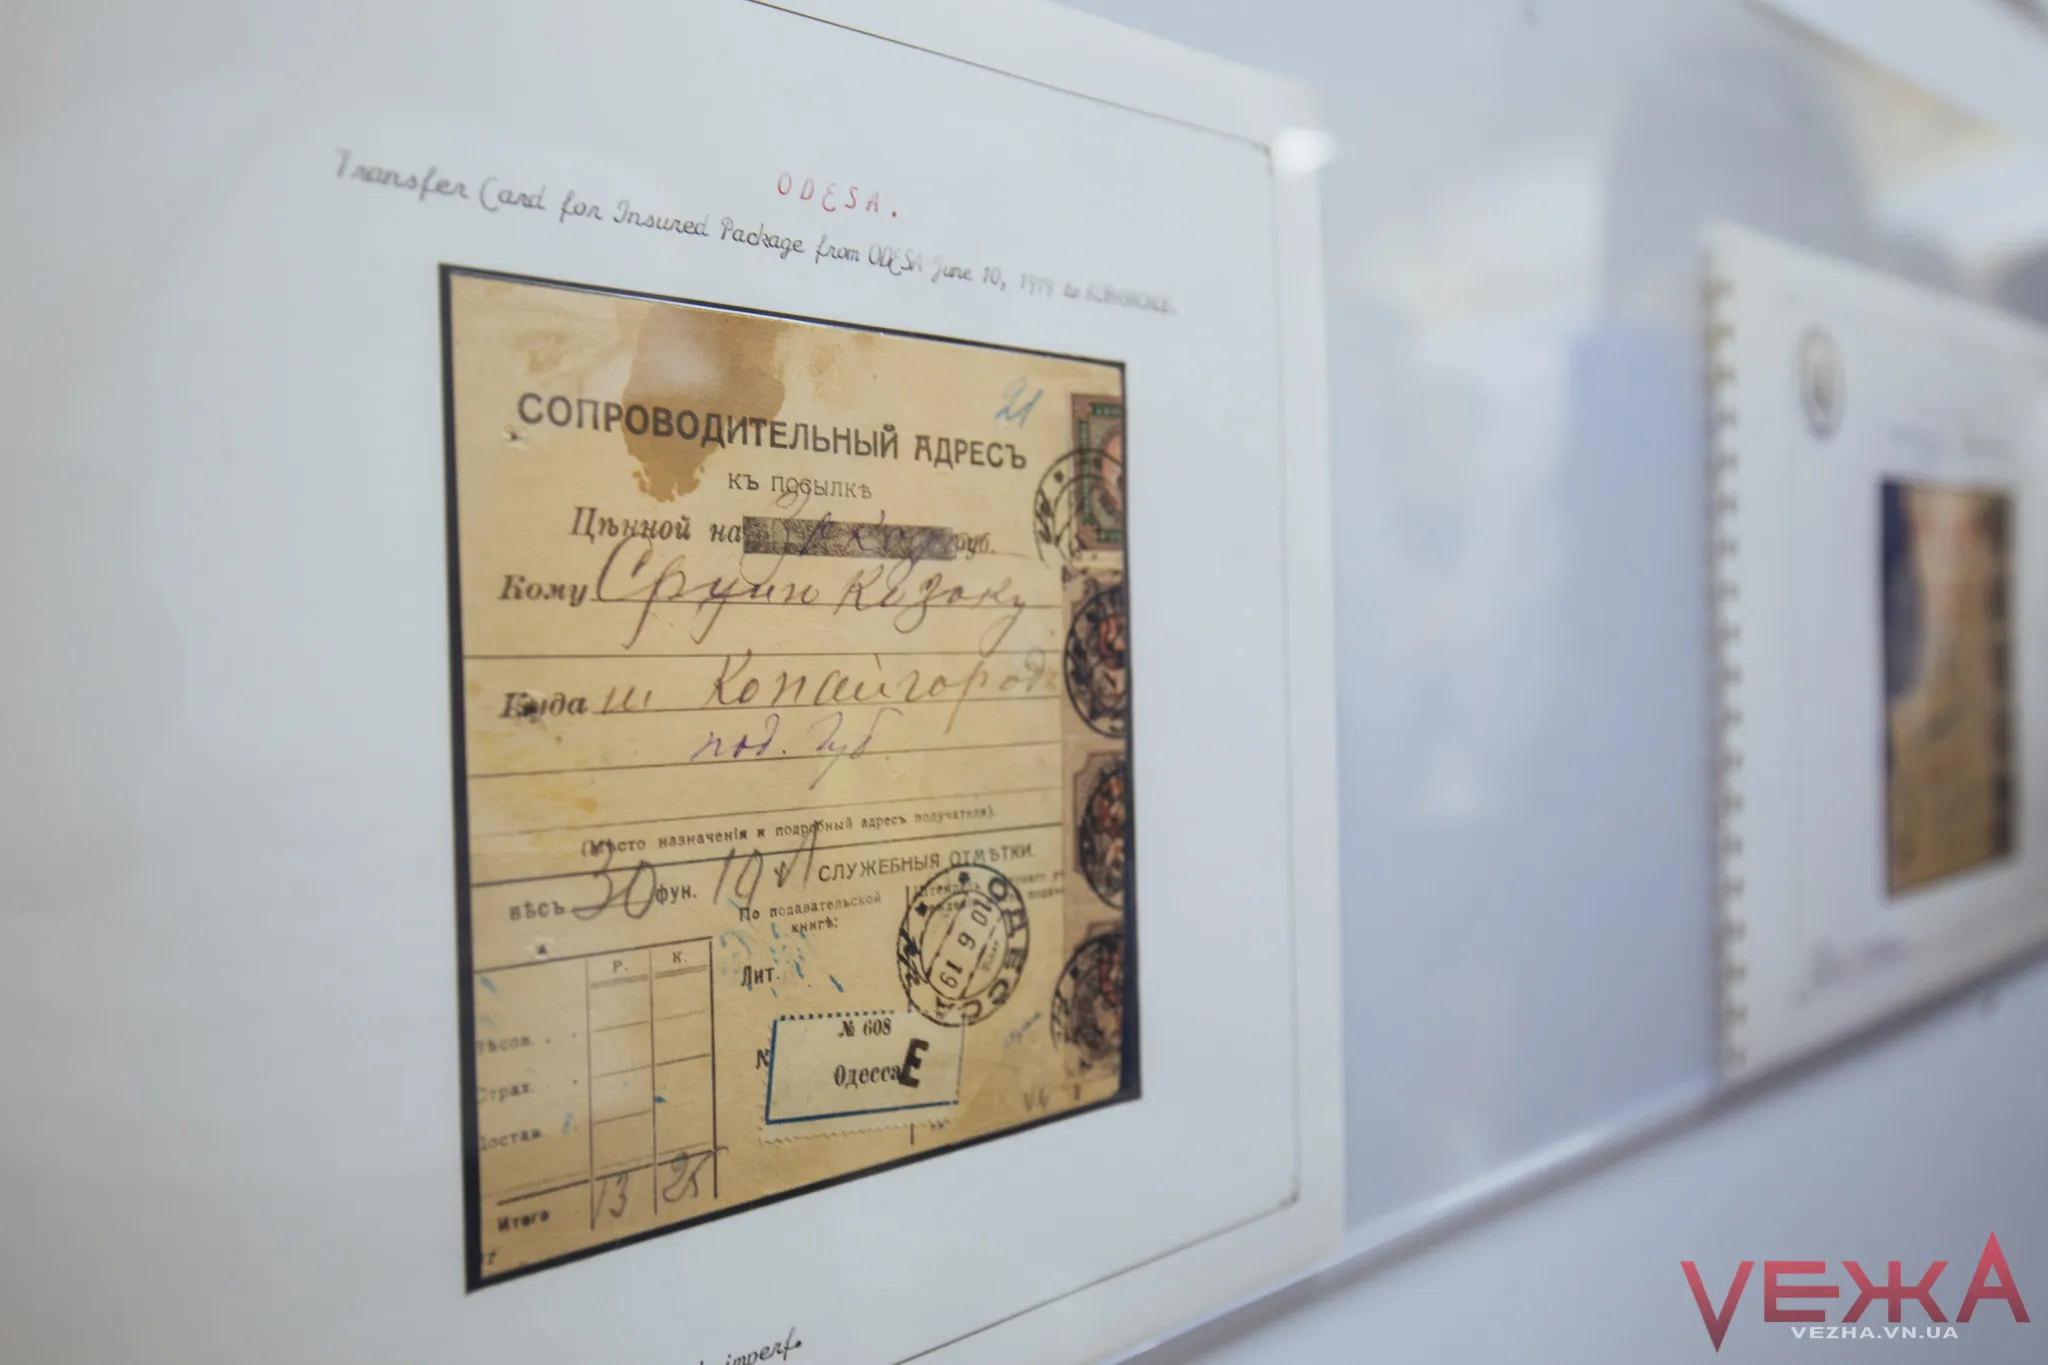 ODESA.
Transfer Card for Insured Package from ODESA June 10, 1919 to
21
СОПРОВОДИТЕЛЬНЫЙ АДРЕСЪ
КЪ ПОСЫЛКѢ
Цѣнной на руб.
Кому Козаку
Куда м Копайгородъ
под. губ
(Мѣсто назначенія и подробный адресъ получателя)
вѣсъ 30 фун. 19
СЛУЖЕБНЫЯ ОТМѢТКИ.
По подавательской
книгѣ:
Лит.
ОДЕССА
10 6 19
№ 608
Одесса Е
Р. К.
Вѣсов.
Страх.
Достав.
Итого 13 25
imperf.
ВЕЖА
VEZHA.VN.UA